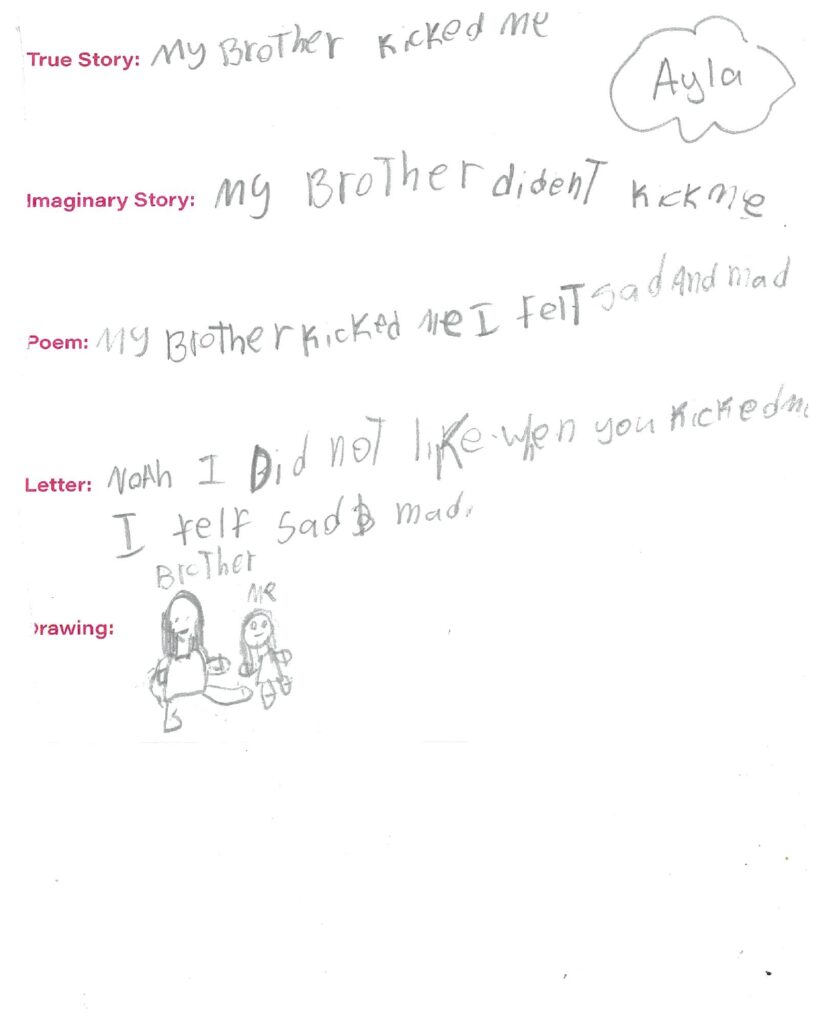 True Story: My BroTher kicked me
Ayla
Imaginary Story: My BroTher didenT kick me
Poem: My Brother kicked Me I FelT sad And mad
Letter: NoAh I Did noT like when you kicked me
I felt sad & mad.
BroTher
Me
Drawing: